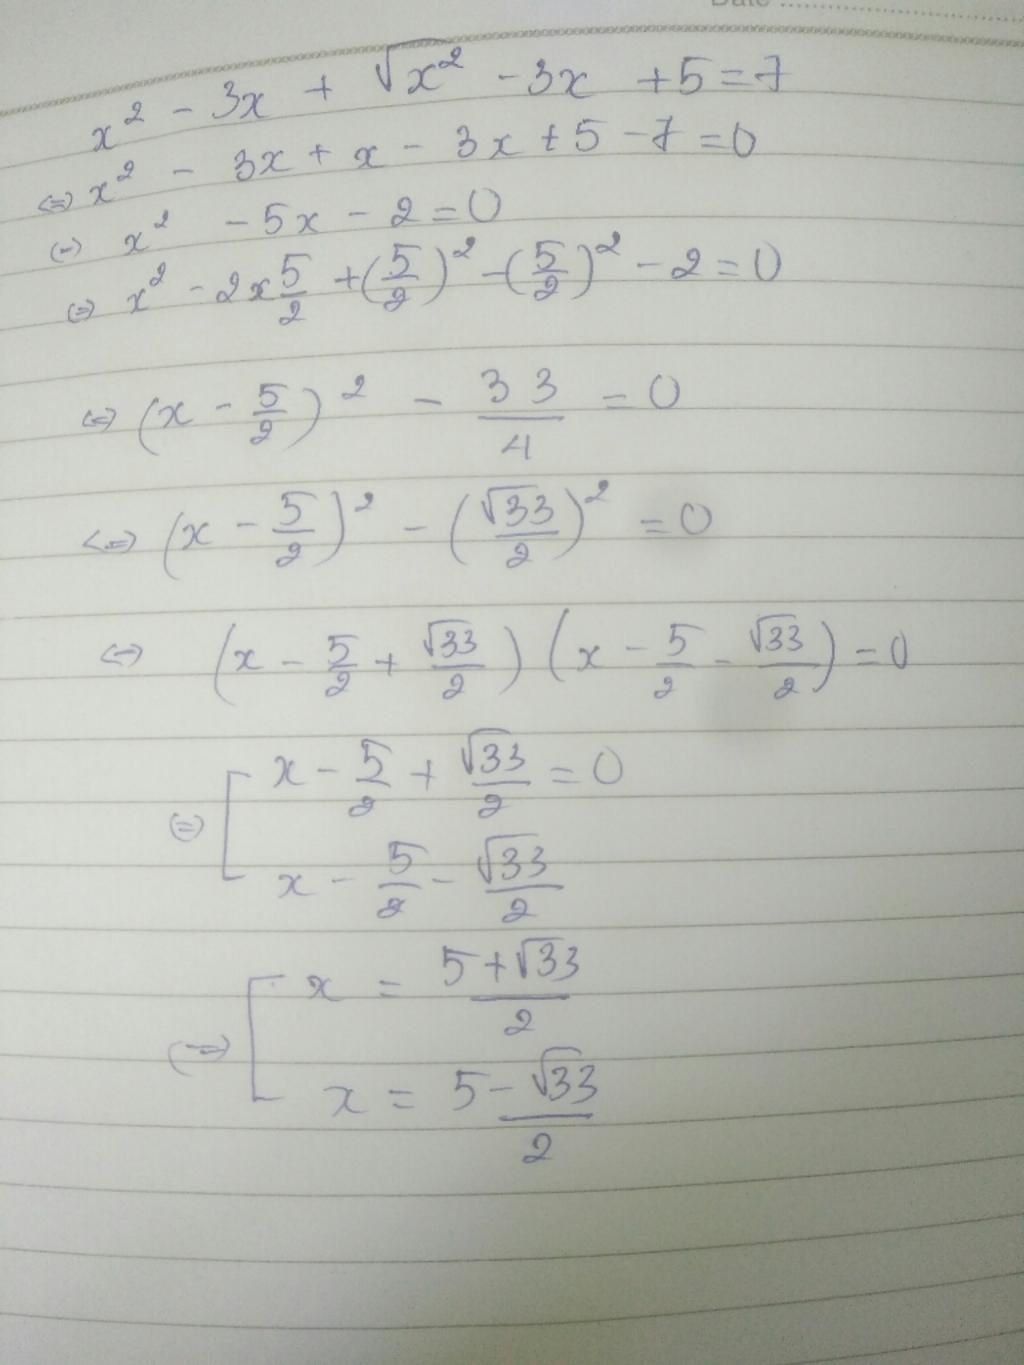 Date
x² - 3x + √x² - 3x + 5 = 7
<=> x² - 3x + x - 3x + 5 - 7 = 0
(-) x² - 5x - 2 = 0
(=) x² - 2x 5/2 + (5/2)² - (5/2)² - 2 = 0
<=> (x - 5/2)² - 33/4 = 0
<=> (x - 5/2)² - (√33/2)² = 0
<-> (x - 5/2 + √33/2) (x - 5/2 - √33/2) = 0
(=) [ x - 5/2 + √33/2 = 0
x - 5/2 - √33/2
(=> [ x = 5+√33/2
x = 5-√33/2